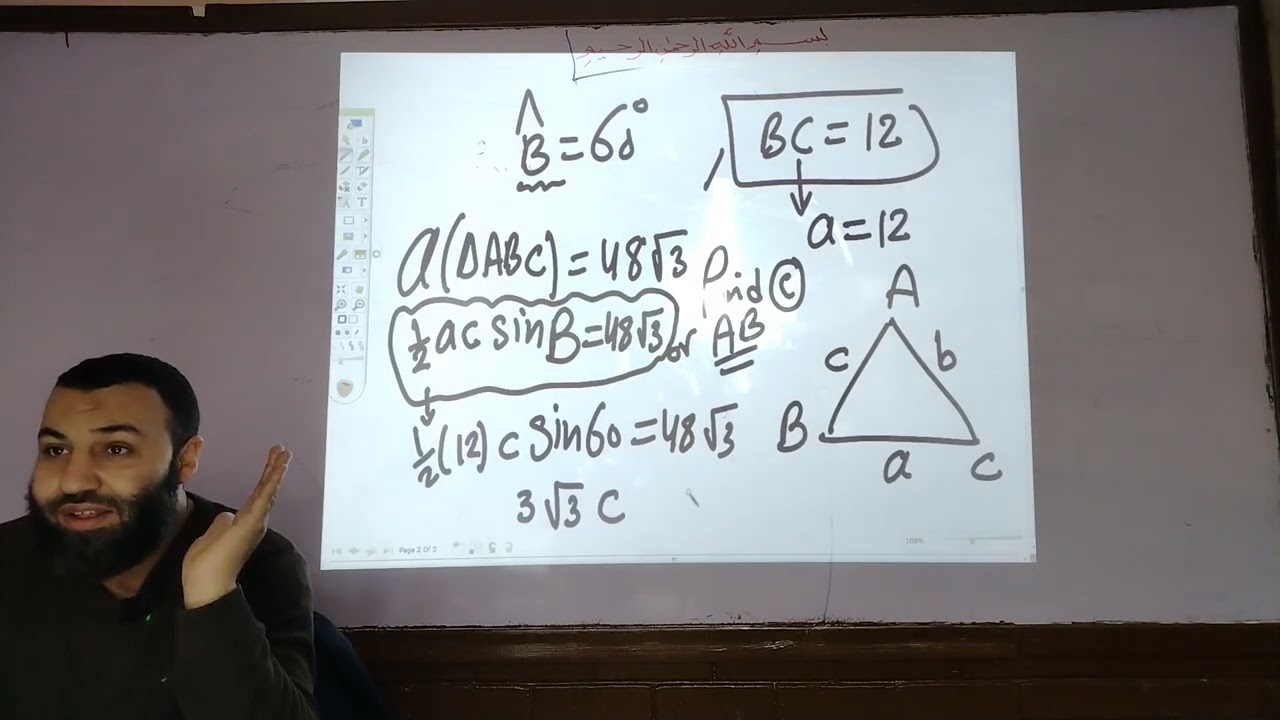 بسم الله الرحمن الرحيم
B̂ = 60°
BC = 12
a = 12
a(ΔABC) = 48√3
Find c
½ ac sin B = 48√3
or AB
½(12) c sin 60 = 48√3
3√3 c
A
c
b
B
a
C
Page 2 Of 2
100%